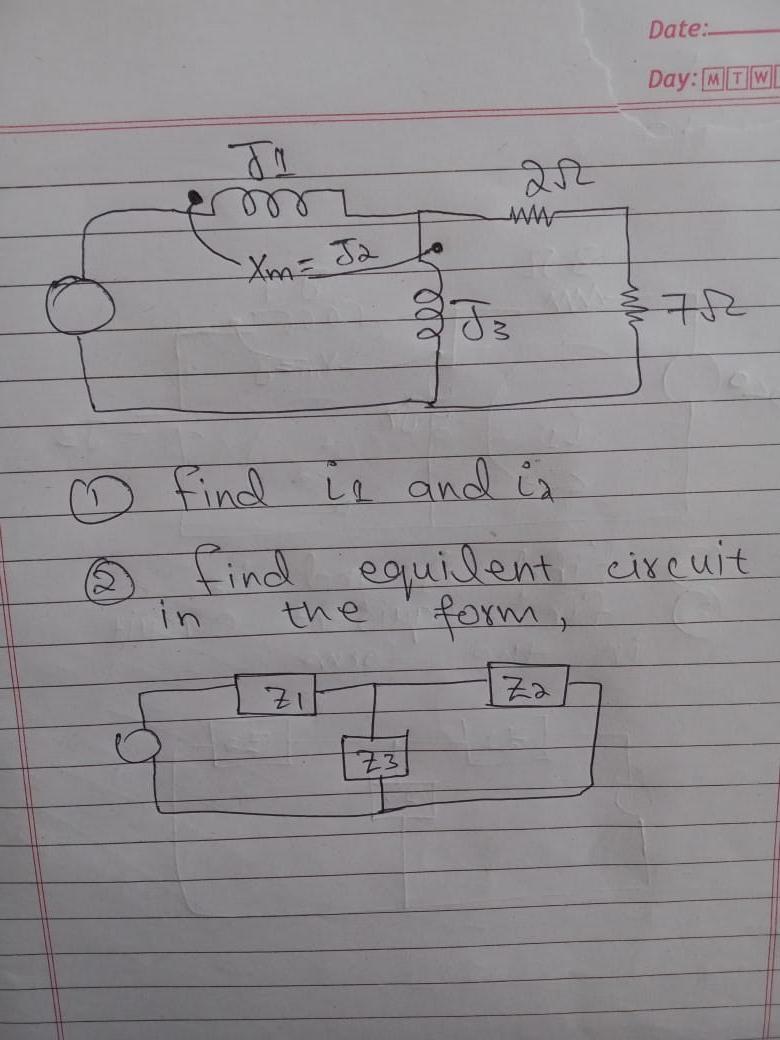 Date:
Day: M T W
J1
2Ω
Xm = J2
J3
7Ω
① find i1 and i2
② find equilent circuit
in the form,
Z1
Z2
Z3